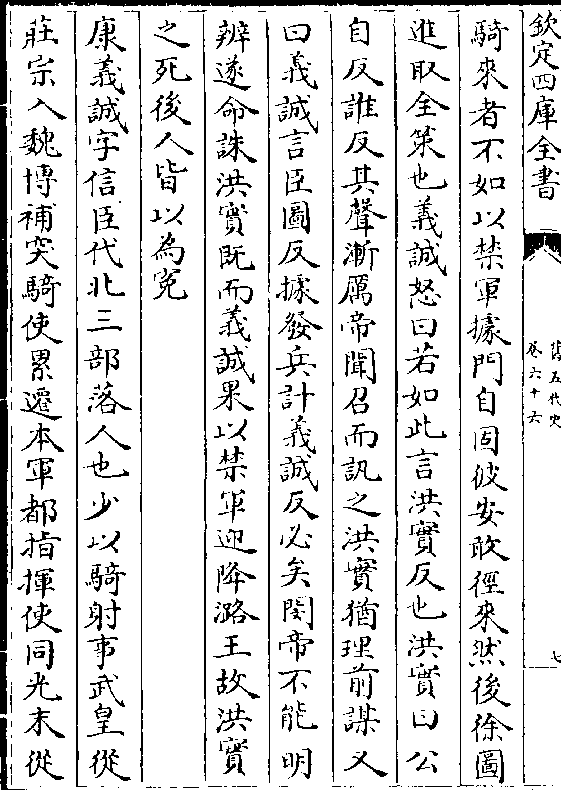 欽定四庫全書
舊五代史
卷六十六
七
騎來者不如以禁軍據門自固彼安敢徑來然後徐圖
進取全策也義誠怒曰若如此言洪實反也洪實曰公
自反誰反其聲漸厲帝聞召而訊之洪實猶理前謀又
曰義誠言臣圖反據發兵計義誠反必矣閔帝不能明
辨遂命誅洪實既而義誠果以禁軍迎降潞王故洪實
之死後人皆以為寃
康義誠字信臣代北三部落人也少以騎射事武皇從
莊宗入魏博補突騎使累遷本軍都指揮使同光末從